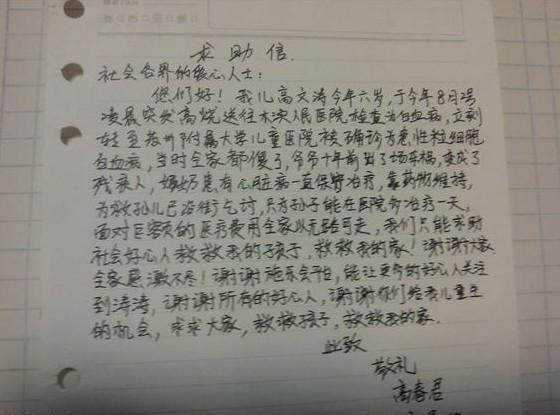 求助信.
社会各界的爱心人士:
您们好! 我儿高文涛今年六岁,于今年8月2号
凌晨突发高烧送往木渎人民医院检查为白血病,立刻
转至苏州附属大学儿童医院被确诊为急性粒细胞
白血病,当时全家都傻了,爷爷十年前出了场车祸,变成了
残疾人,奶奶患有心脏病一直保守治疗,靠药物维持,
为救孙儿已沿街乞讨,只为孙子能在医院多治疗一天,
面对巨额的医疗费用全家以无路可走,我们只能求助
社会好心人救救我的孩子,救救我的家!谢谢大家
全家感激不尽!谢谢施乐会平台,能让更多的好心人关注
到涛涛,谢谢所有的好心人,谢谢你们给我儿重生
的机会,求求大家,救救孩子,救救我的家.
此致
敬礼
高春君